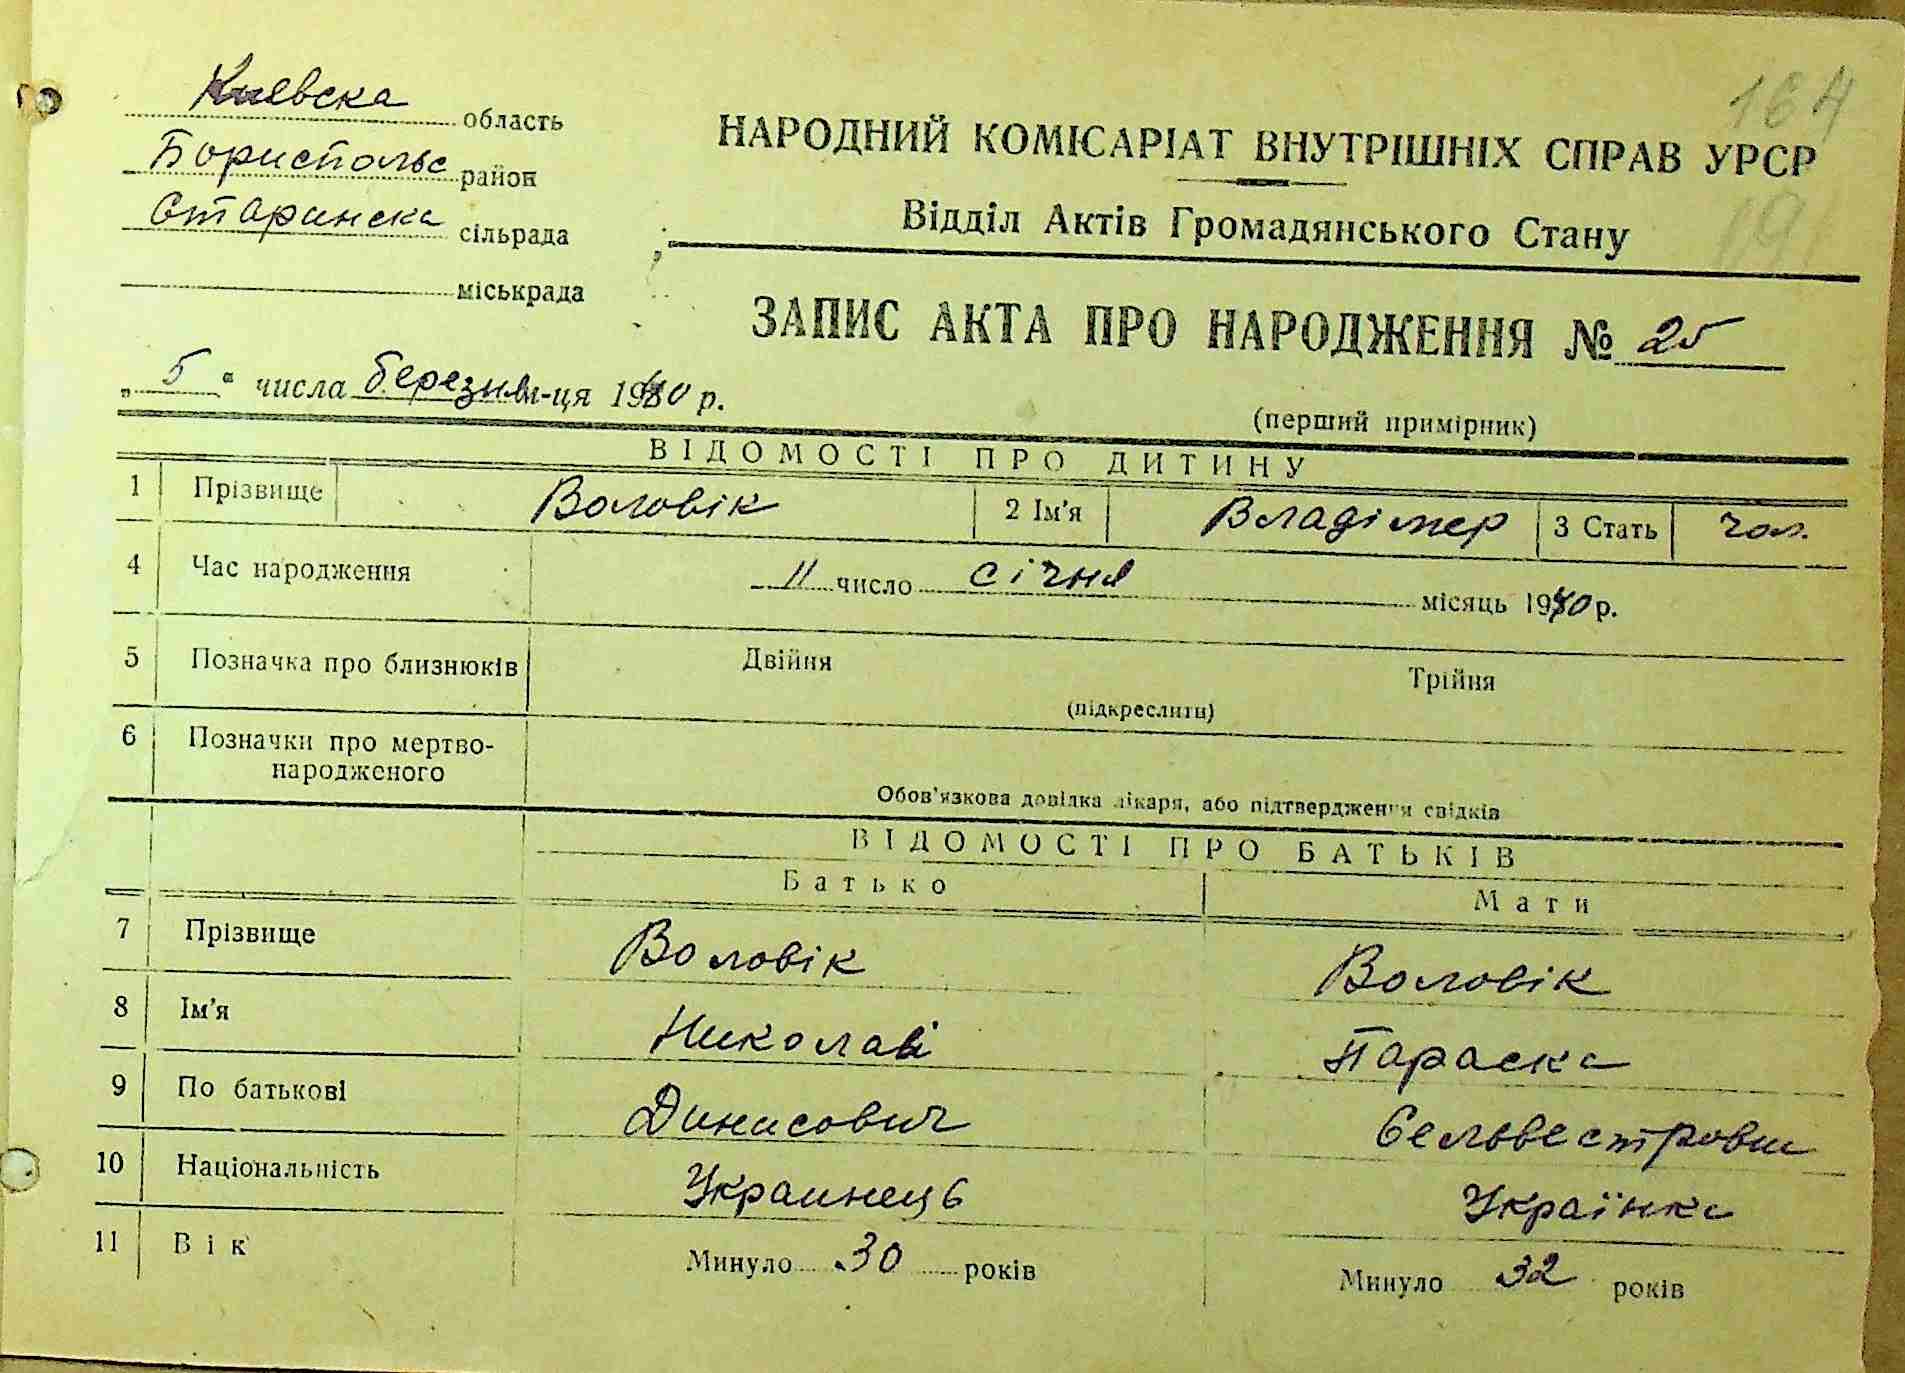 164
Киевска область
Бориспольс район
Старинска сільрада
міськрада
НАРОДНИЙ КОМІСАРІАТ ВНУТРІШНІХ СПРАВ УРСР
Відділ Актів Громадянського Стану
ЗАПИС АКТА ПРО НАРОДЖЕННЯ № 25
„ 5 “ числа березня м-ця 1940 р.
(перший примірник)
ВІДОМОСТІ ПРО ДИТИНУ
1 Прізвище Воловік 2 Ім'я Владімер 3 Стать чол.
4 Час народження 11 число січня місяць 1940 р.
5 Позначка про близнюків Двійня Трійня
(підкреслити)
6 Позначки про мертво-
народженого
Обов'язкова довідка лікаря, або підтвердження свідків
ВІДОМОСТІ ПРО БАТЬКІВ
Батько Мати
7 Прізвище Воловік Воловік
8 Ім'я Николай Параска
9 По батькові Динисович Сельвестровн
10 Національність Украинець Українка
11 Вік Минуло 30 років Минуло 32 років